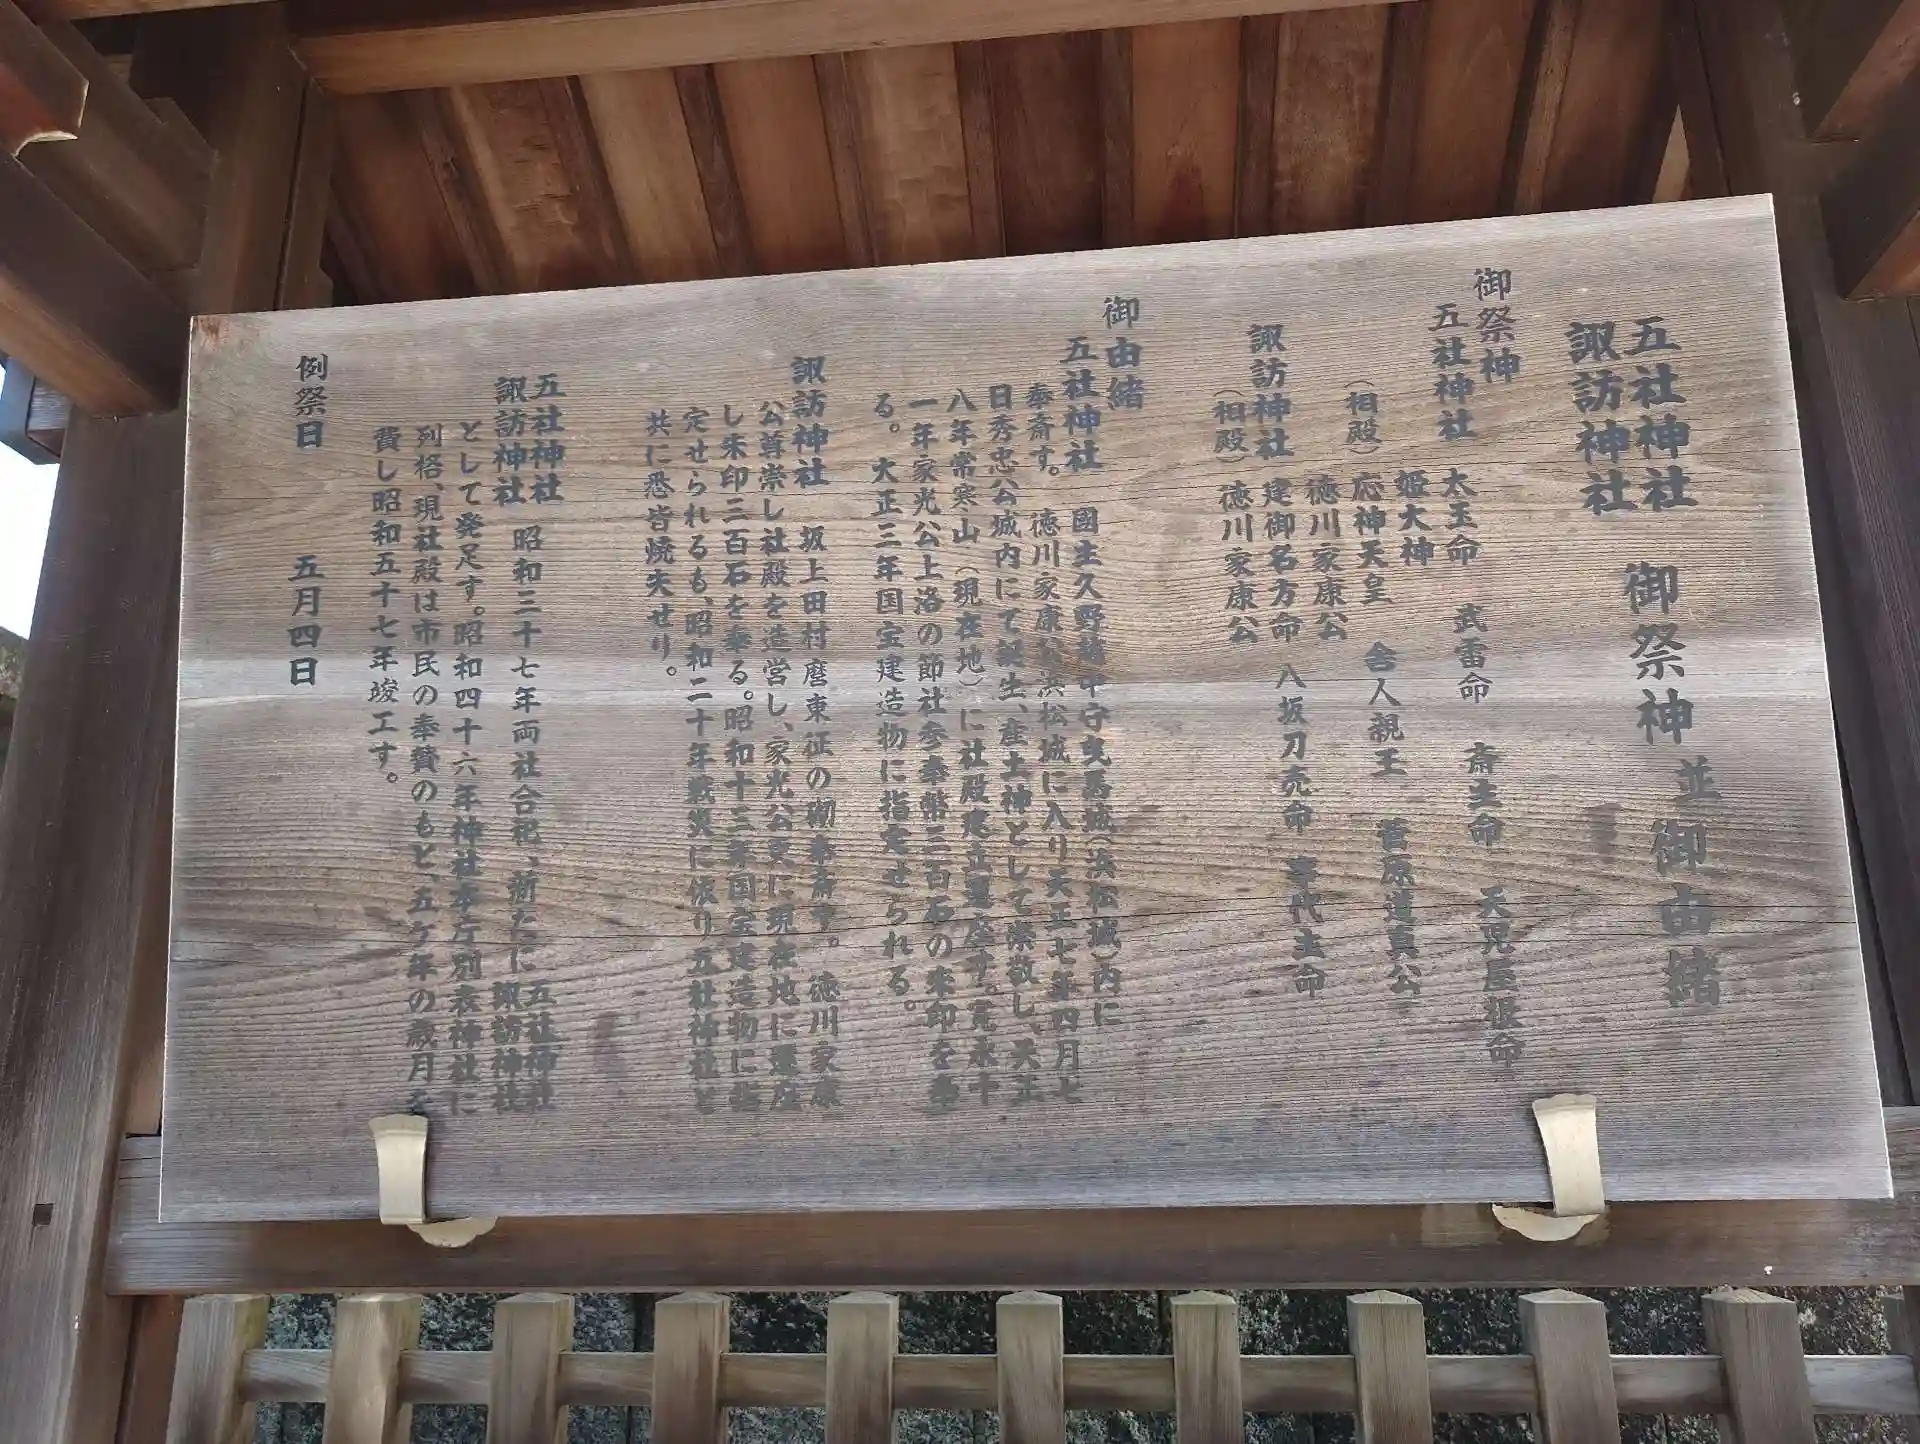 五社神社
諏訪神社
御祭神並御由緒
御祭神
五社神社
太玉命 武雷命 斎主命 天児屋根命
姫大神
(相殿)
応神天皇 舎人親王 菅原道真公
徳川家康公
諏訪神社
建御名方命 八坂刀売命 事代主命
(相殿)徳川家康公
御由緒
五社神社 國主久野越中守曳馬城(浜松城)内に
奉斎す。徳川家康公浜松城に入り天正七年四月七
日秀忠公城内にて誕生、産土神として崇敬し、天正
八年常寒山(現在地)に社殿建立遷座す。寛永十
一年家光公上洛の節社参奉幣三百石の朱印を奉
る。大正三年国宝建造物に指定せられる。
諏訪神社 坂上田村麿東征の砌奉斎す。徳川家康
公尊崇し社殿を造営し、家光公更に現在地に遷座
し朱印三百石を奉る。昭和十三年国宝建造物に指
定せられるも、昭和二十年戦災に依り五社神社と
共に悉皆焼失せり。
五社神社
諏訪神社
昭和三十七年両社合祀、新たに
五社神社
諏訪神社
として発足す。昭和四十六年神社本庁別表神社に
列格、現社殿は市民の奉賛のもと、五ケ年の歳月を
費し昭和五十七年竣工す。
例祭日 五月四日